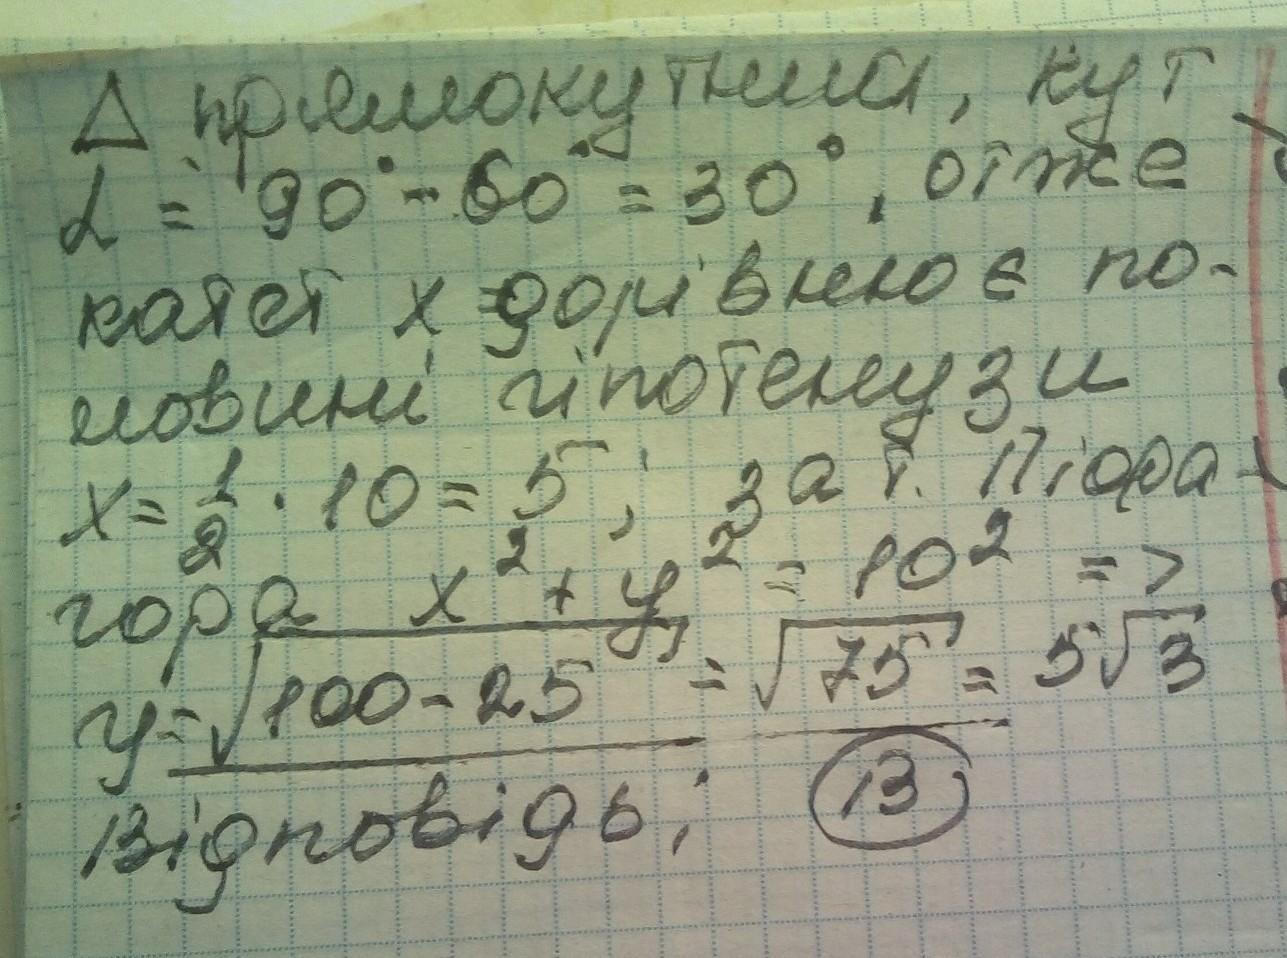 Δ прямокутний, кут
α = 90° - 60° = 30°, отже
катет x дорівнює по-
ловині гіпотенузи
x = 1/2 · 10 = 5; за т. Піфа-
гора x² + y² = 10² =>
y = √100 - 25 = √75 = 5√3
Відповідь: В